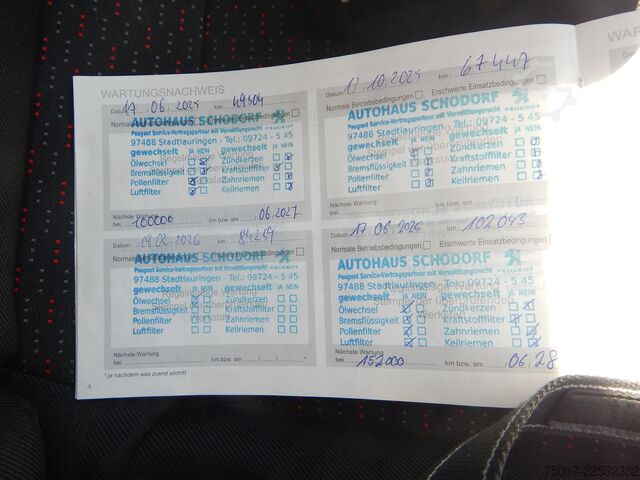 WARTUNGSNACHWEIS
Datum 17 06.2025 km 49504
AUTOHAUS SCHODORF
Peugeot Service-Vertragspartner mit Vermittlungsrecht PEUGEOT
97488 Stadtlauringen - Tel.: 09724 - 5 45
gewechselt JA NEIN gewechselt JA NEIN
Ölwechsel Zündkerzen
Bremsflüssigkeit Kraftstofffilter
Pollenfilter Zahnriemen
Luftfilter Keilriemen
Nächste Wartung
bei 100000 km bzw. am 06.2027.
Datum 10.2025 km 67447
Normale Betriebsbedingungen Erschwerte Einsatzbedingungen
AUTOHAUS SCHODORF
Peugeot Service-Vertragspartner mit Vermittlungsrecht PEUGEOT
97488 Stadtlauringen - Tel.: 09724 - 5 45
gewechselt JA NEIN gewechselt JA NEIN
Ölwechsel Zündkerzen
Bremsflüssigkeit Kraftstofffilter
Pollenfilter Zahnriemen
Luftfilter Keilriemen
Nächste Wartung
bei km bzw. am
Datum 19.02.2026 km 84219
AUTOHAUS SCHODORF
Peugeot Service-Vertragspartner mit Vermittlungsrecht PEUGEOT
97488 Stadtlauringen - Tel.: 09724 - 5 45
gewechselt JA NEIN gewechselt JA NEIN
Ölwechsel Zündkerzen
Bremsflüssigkeit Kraftstofffilter
Pollenfilter Zahnriemen
Luftfilter Keilriemen
Nächste Wartung
bei km bzw. am / / *
Datum 17.06.2026 km 102043
Normale Betriebsbedingungen Erschwerte Einsatzbedingungen
AUTOHAUS SCHODORF
Peugeot Service-Vertragspartner mit Vermittlungsrecht PEUGEOT
97488 Stadtlauringen - Tel.: 09724 - 5 45
gewechselt JA NEIN gewechselt JA NEIN
Ölwechsel Zündkerzen
Bremsflüssigkeit Kraftstofffilter
Pollenfilter Zahnriemen
Luftfilter Keilriemen
Nächste Wartung
bei 152000 km bzw. am 06.28
* je nachdem was zuerst eintritt
4
75017-22532382